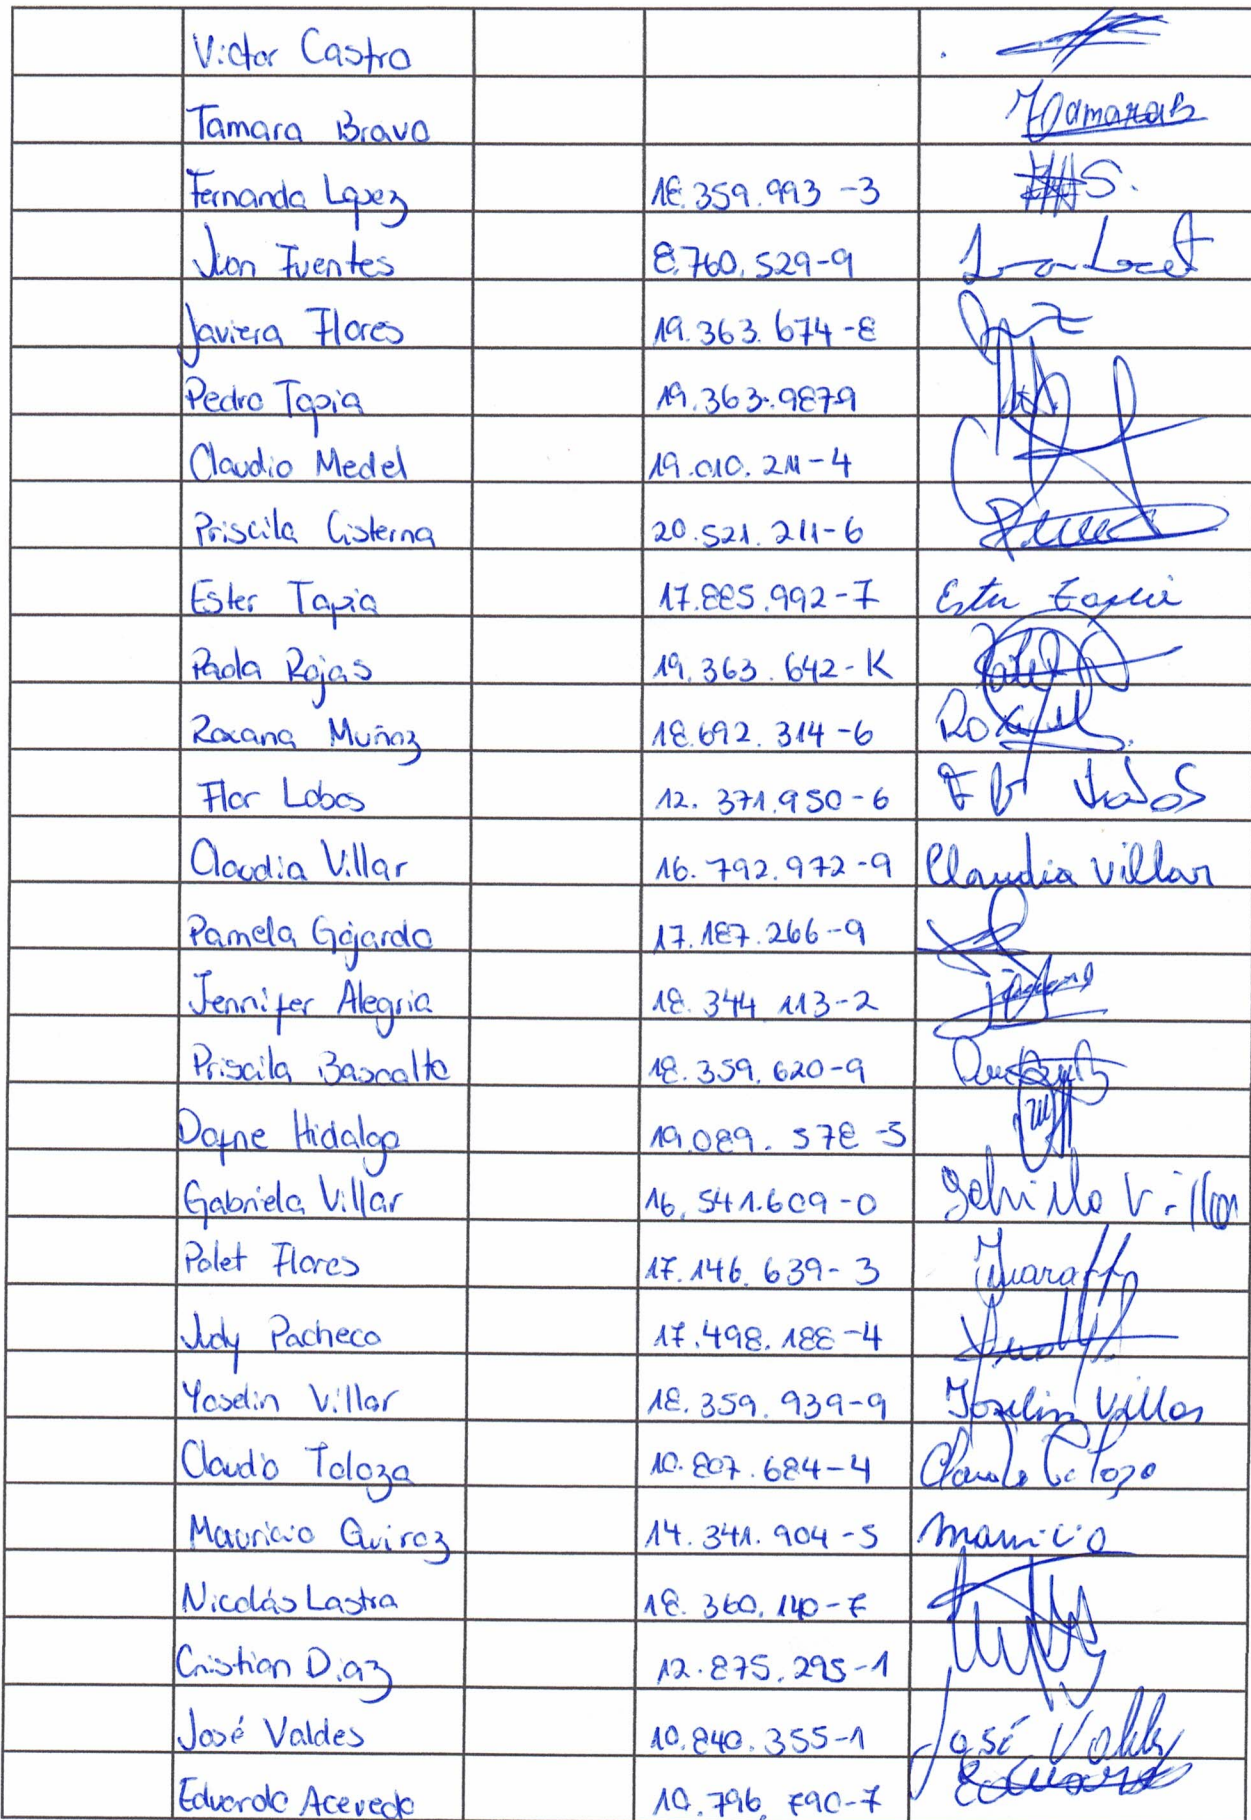 Victor Castro
Tamara Bravo Tamarab
Fernanda Lopez 18.359.993-3
Juan Fuentes 8.760.529-9
Javiera Flores 19.363.674-8
Pedro Tapia 19.363.9879
Claudio Medel 19.010.211-4
Priscila Cisterna 20.521.211-6
Ester Tapia 17.885.992-7 Ester Tapia
Paola Rojas 19.363.642-K
Roxana Muñoz 18.692.314-6
Flor Lobos 12.371.950-6
Claudia Villar 16.792.972-9 Claudia Villar
Pamela Gajardo 17.187.266-9
Jennifer Alegria 18.344 113-2
Priscila Basoalto 18.359.620-9
Dafne Hidalgo 19.089.578-5
Gabriela Villar 16.541.609-0
Polet Flores 17.146.639-3
Judy Pacheco 17.498.188-4
Yoselin Villar 18.359.939-9 Joselin Villar
Claudio Toloza 10.807.684-4
Mauricio Quiroz 14.341.904-5 Mauricio
Nicolás Lastra 18.360.140-7
Cristian Diaz 12.875.295-1
José Valdes 10.840.355-1 José Valdes
Eduardo Acevedo 10.796.790-7